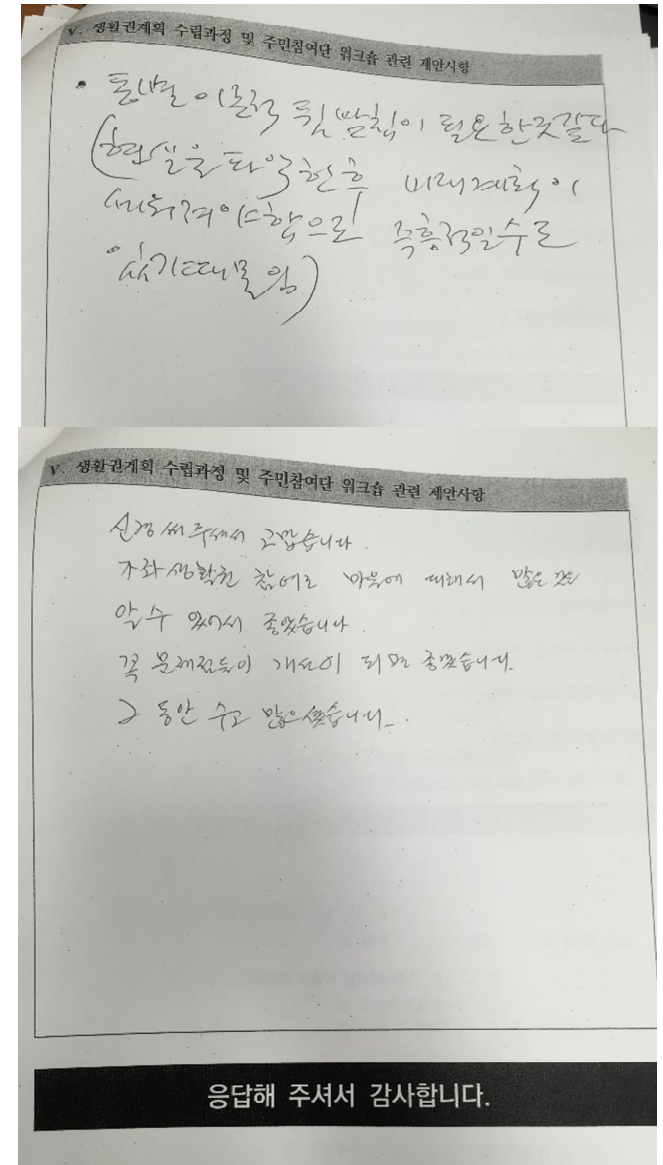 V. 생활권계획 수립과정 및 주민참여단 워크숍 관련 제안사항
• 통별 이론적 뒷받침이 필요한것같다
(현실을 파악한후 미래계획이
세워져야함으로 즉흥적일수는
없기때문임)
V. 생활권계획 수립과정 및 주민참여단 워크숍 관련 제안사항
신경써주셔서 고맙습니다.
가좌생활권 참여로 마을에 대해서 많은 것을
알 수 있어서 좋았습니다.
꼭 문제점들이 개선이 되면 좋겠습니다.
그 동안 수고 많으셨습니다.
응답해 주셔서 감사합니다.